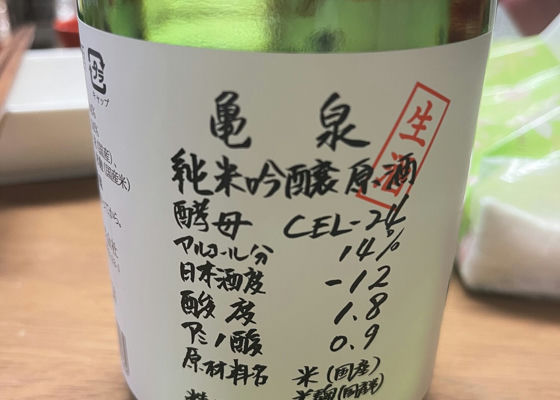 亀泉
生酒
純米吟醸原酒
酵母 CEL-24
アルコール分 14%
日本酒度 -12
酸度 1.8
アミノ酸 0.9
原材料名 米(国産)
米麹(国産米)
キャップ